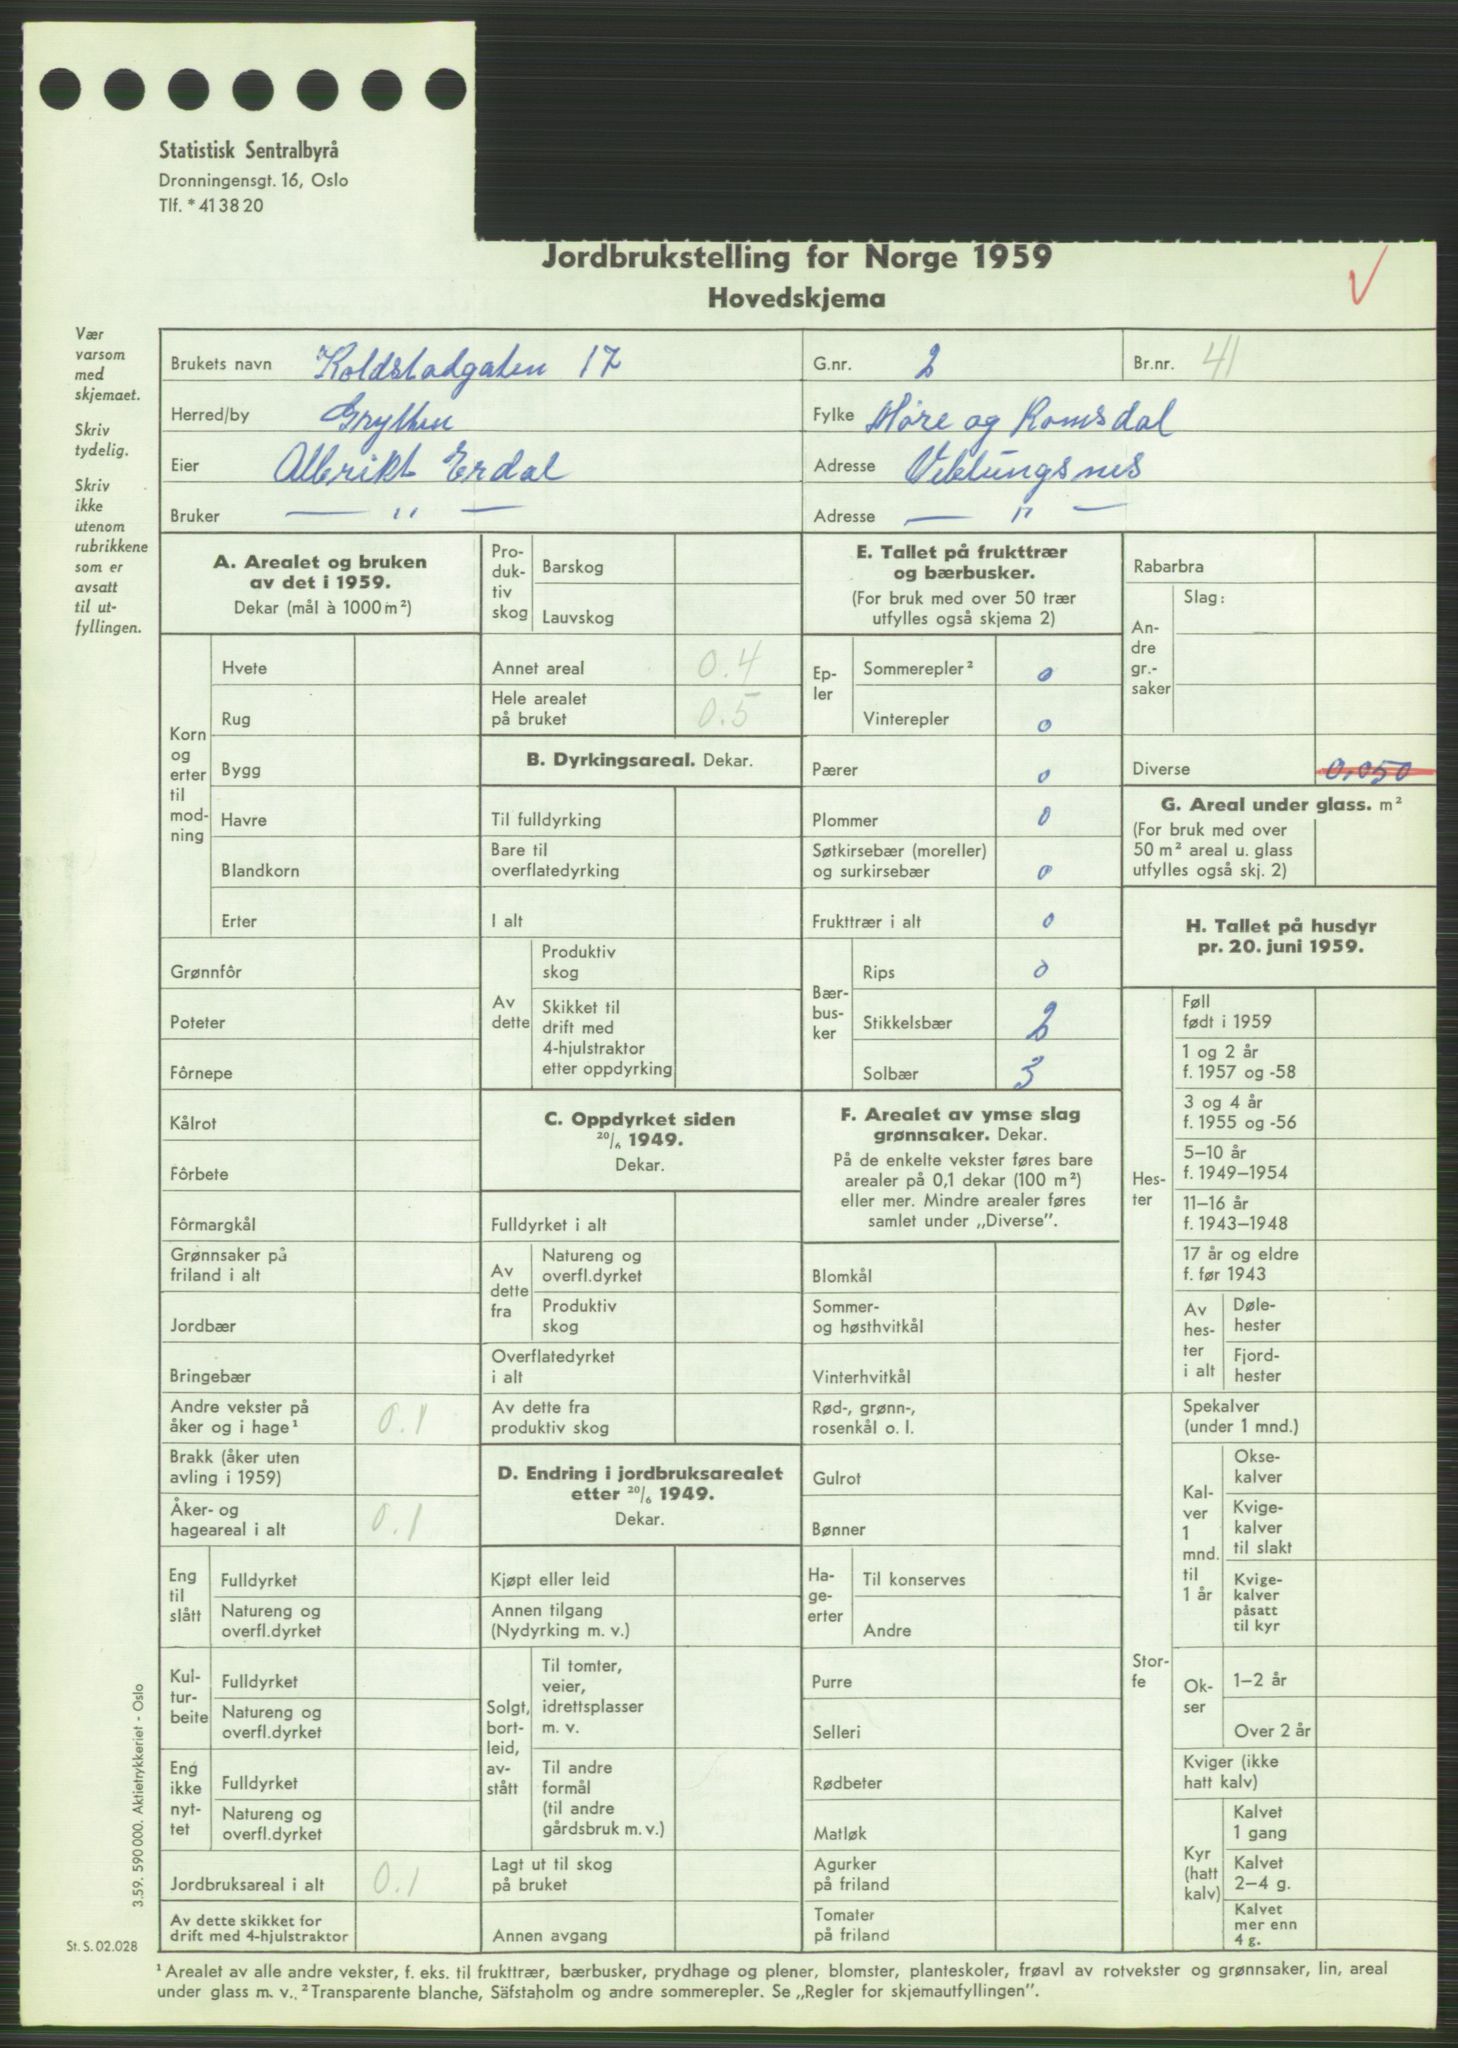 Statistisk Sentralbyrå
Dronningensgt. 16, Oslo
Tlf. * 41 38 20
Jordbrukstelling for Norge 1959
Hovedskjema
Vær
varsom
med
skjemaet.
Skriv
tydelig.
Skriv
ikke
utenom
rubrikkene
som er
avsatt
til ut-
fyllingen.
Brukets navn Koldstadgaten 17 G.nr. 2 Br.nr. 41
Herred/by Grytten Fylke Møre og Romsdal
Eier Albrikt Erdal Adresse Veblungsnes
Bruker — " — Adresse — " —
A. Arealet og bruken
av det i 1959.
Dekar (mål à 1000 m²)
Korn
og
erter
til
mod-
ning
Hvete
Rug
Bygg
Havre
Blandkorn
Erter
Grønnfôr
Poteter
Fôrnepe
Kålrot
Fôrbete
Fôrmargkål
Grønnsaker på
friland i alt
Jordbær
Bringebær
Andre vekster på
åker og i hage¹ 0.1
Brakk (åker uten
avling i 1959)
Åker- og
hageareal i alt 0.1
Eng
til
slått
Fulldyrket
Natureng og
overfl.dyrket
Kul-
tur-
beite
Fulldyrket
Natureng og
overfl.dyrket
Eng
ikke
nyt-
tet
Fulldyrket
Natureng og
overfl.dyrket
Jordbruksareal i alt 0.1
Av dette skikket for
drift med 4-hjulstraktor
Pro-
duk-
tiv
skog
Barskog
Lauvskog
Annet areal 0.4
Hele arealet
på bruket 0.5
B. Dyrkingsareal. Dekar.
Til fulldyrking
Bare til
overflatedyrking
I alt
Av
dette
Produktiv
skog
Skikket til
drift med
4-hjulstraktor
etter oppdyrking
C. Oppdyrket siden
20/6 1949.
Dekar.
Fulldyrket i alt
Av
dette
fra
Natureng og
overfl.dyrket
Produktiv
skog
Overflatedyrket
i alt
Av dette fra
produktiv skog
D. Endring i jordbruksarealet
etter 20/6 1949.
Dekar.
Kjøpt eller leid
Annen tilgang
(Nydyrking m. v.)
Solgt,
bort-
leid,
av-
stått
Til tomter,
veier,
idrettsplasser
m. v.
Til andre
formål
(til andre
gårdsbruk m. v.)
Lagt ut til skog
på bruket
Annen avgang
E. Tallet på frukttrær
og bærbusker.
(For bruk med over 50 trær
utfylles også skjema 2)
Ep-
ler
Sommerepler² 0
Vinterepler 0
Pærer 0
Plommer 0
Søtkirsebær (moreller)
og surkirsebær 0
Frukttrær i alt 0
Bær-
bus-
ker
Rips 0
Stikkelsbær 2
Solbær 3
F. Arealet av ymse slag
grønnsaker. Dekar.
På de enkelte vekster føres bare
arealer på 0,1 dekar (100 m²)
eller mer. Mindre arealer føres
samlet under „Diverse”.
Blomkål
Sommer-
og høsthvitkål
Vinterhvitkål
Rød-, grønn-,
rosenkål o. l.
Gulrot
Bønner
Ha-
ge-
erter
Til konserves
Andre
Purre
Selleri
Rødbeter
Matløk
Agurker
på friland
Tomater
på friland
Rabarbra
An-
dre
gr.-
saker
Slag:
Diverse 0,050
G. Areal under glass. m²
(For bruk med over
50 m² areal u. glass
utfylles også skj. 2)
H. Tallet på husdyr
pr. 20. juni 1959.
Hes-
ter
Føll
født i 1959
1 og 2 år
f. 1957 og -58
3 og 4 år
f. 1955 og -56
5–10 år
f. 1949–1954
11–16 år
f. 1943–1948
17 år og eldre
f. før 1943
Av
hes-
ter
i alt
Døle-
hester
Fjord-
hester
Stor-
fe
Spekalver
(under 1 mnd.)
Kal-
ver
1
mnd.
til
1 år
Okse-
kalver
Kvige-
kalver
til slakt
Kvige-
kalver
påsatt
til kyr
Ok-
ser
1–2 år
Over 2 år
Kviger (ikke
hatt kalv)
Kyr
(hatt
kalv)
Kalvet
1 gang
Kalvet
2–4 g.
Kalvet
mer enn
4 g.
3.59. 590 000. Aktietrykkeriet - Oslo
St. S. 02.028
¹ Arealet av alle andre vekster, f. eks. til frukttrær, bærbusker, prydhage og plener, blomster, planteskoler, frøavl av rotvekster og grønnsaker, lin, areal
under glass m. v.. ² Transparente blanche, Säfstaholm og andre sommerepler. Se „Regler for skjemautfyllingen”.